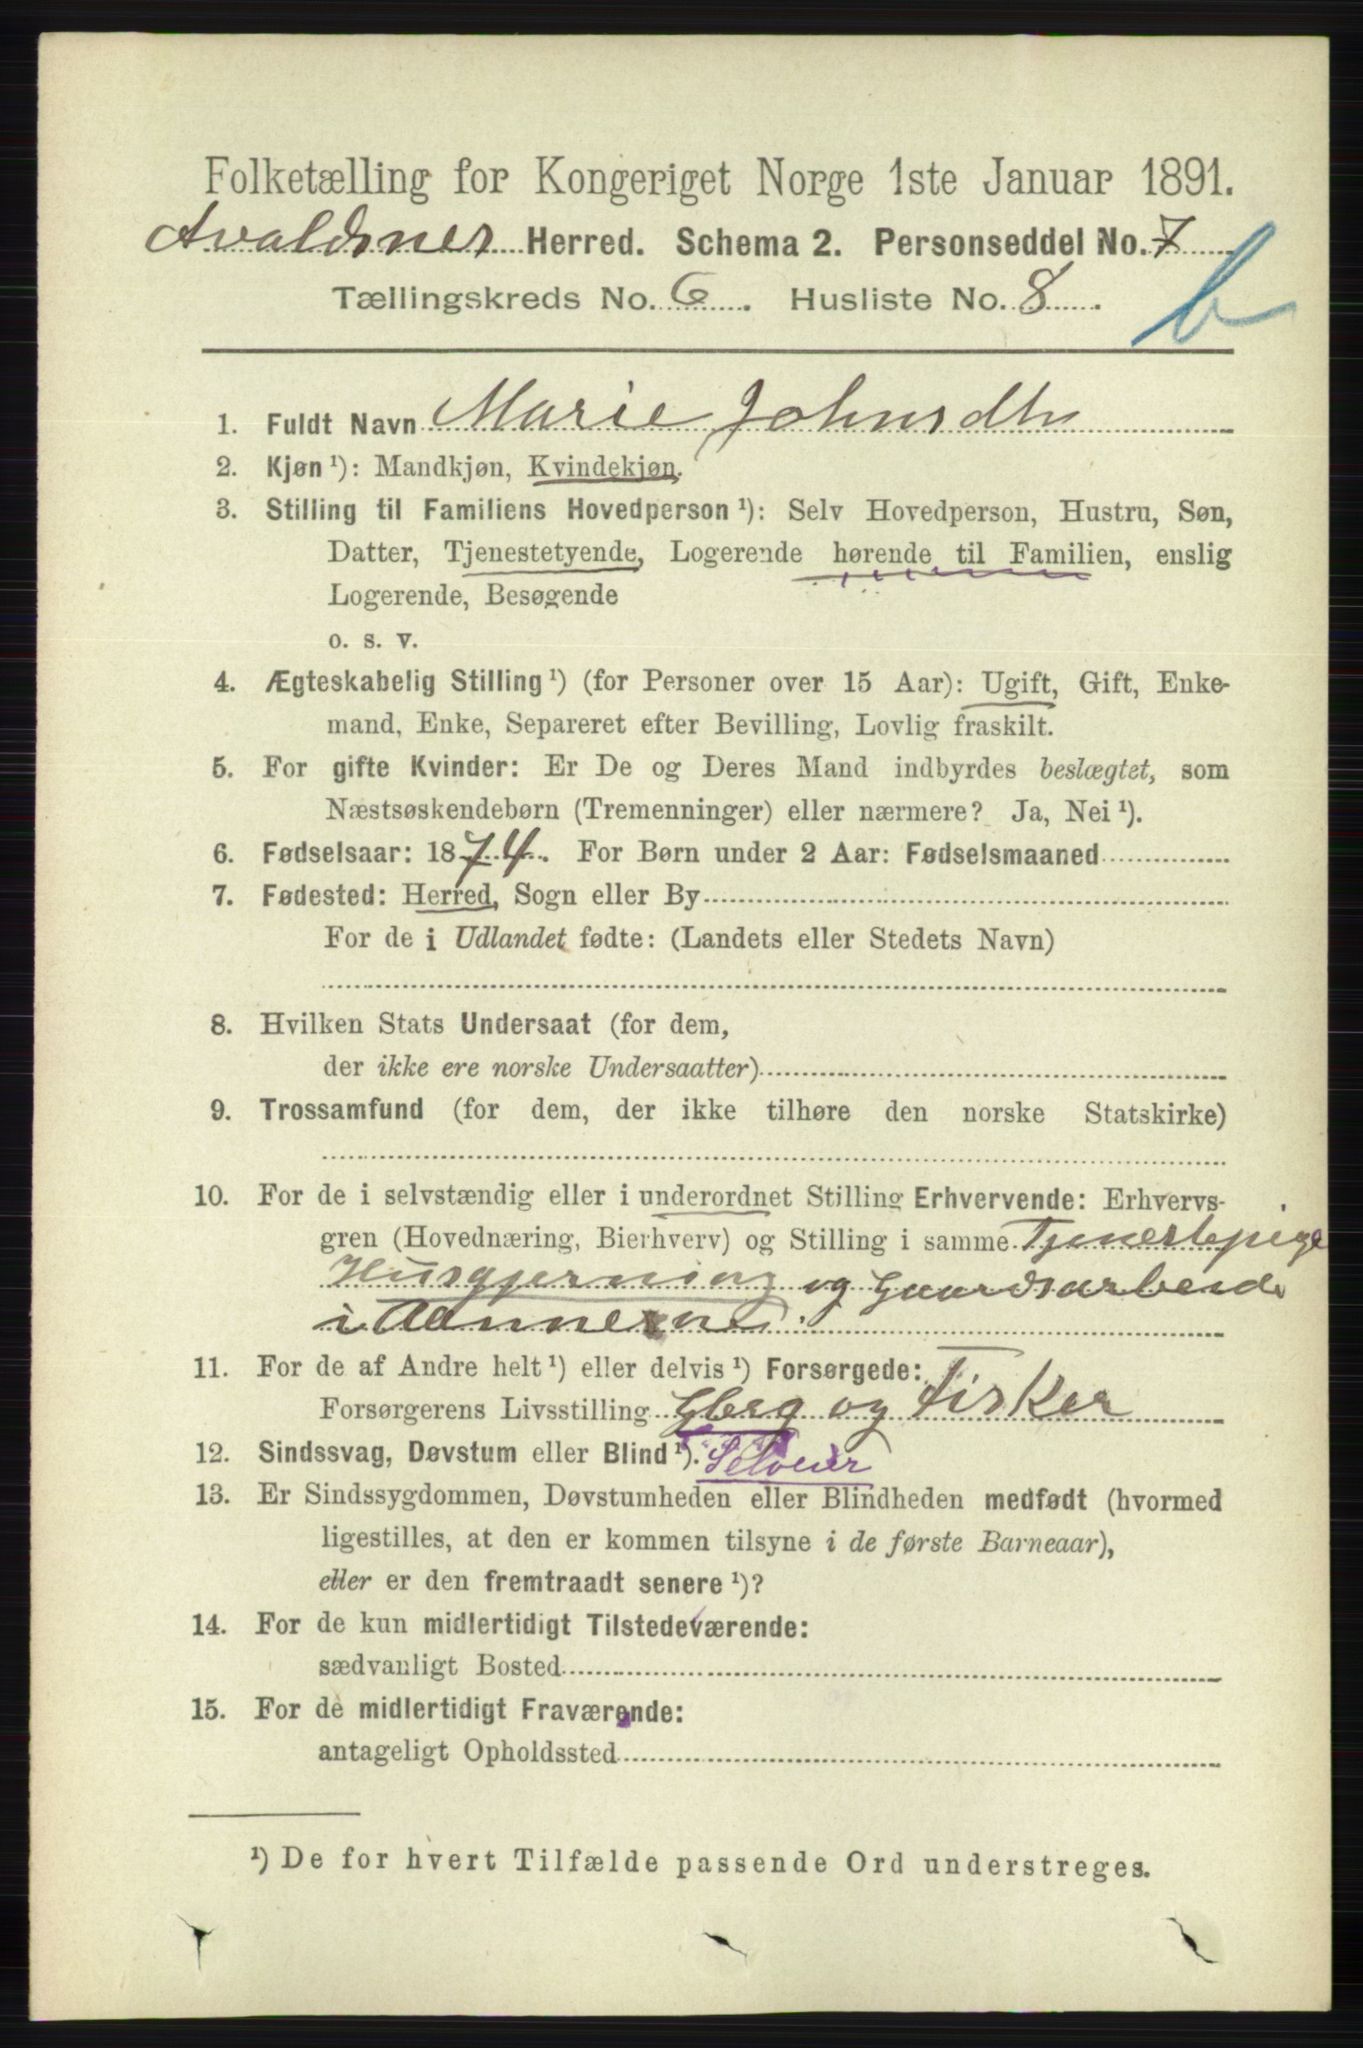 Folketælling for Kongeriget Norge 1ste Januar 1891.
Avaldsnes Herred. Schema 2. Personseddel No. 7
Tællingskreds No. 6. Husliste No. 8.
b
1. Fuldt Navn Marie Johnsdtr
2. Kjøn ¹): Mandkjøn, Kvindekjøn.
3. Stilling til Familiens Hovedperson ¹): Selv Hovedperson, Hustru, Søn,
Datter, Tjenestetyende, Logerende hørende til Familien, enslig
Logerende, Besøgende
o. s. v.
4. Ægteskabelig Stilling ¹) (for Personer over 15 Aar): Ugift, Gift, Enke-
mand, Enke, Separeret efter Bevilling, Lovlig fraskilt.
5. For gifte Kvinder: Er De og Deres Mand indbyrdes beslægtet, som
Næstsøskendebørn (Tremenninger) eller nærmere? Ja, Nei ¹).
6. Fødselsaar: 1874. For Børn under 2 Aar: Fødselsmaaned
7. Fødested: Herred, Sogn eller By
For de i Udlandet fødte: (Landets eller Stedets Navn)
8. Hvilken Stats Undersaat (for dem,
der ikke ere norske Undersaatter)
9. Trossamfund (for dem, der ikke tilhøre den norske Statskirke)
10. For de i selvstændig eller i underordnet Stilling Erhvervende: Erhvervs-
gren (Hovednæring, Bierhverv) og Stilling i samme Tjenestepige
Husgjerning og Gaardsarbeide
i Aannerne.
11. For de af Andre helt ¹) eller delvis ¹) Forsørgede:
Forsørgerens Livsstilling Gbrg og Fisker
12. Sindssvag, Døvstum eller Blind ¹). Selveier
13. Er Sindssygdommen, Døvstumheden eller Blindheden medfødt (hvormed
ligestilles, at den er kommen tilsyne i de første Barneaar),
eller er den fremtraadt senere ¹)?
14. For de kun midlertidigt Tilstedeværende:
sædvanligt Bosted
15. For de midlertidigt Fraværende:
antageligt Opholdssted
¹) De for hvert Tilfælde passende Ord understreges.